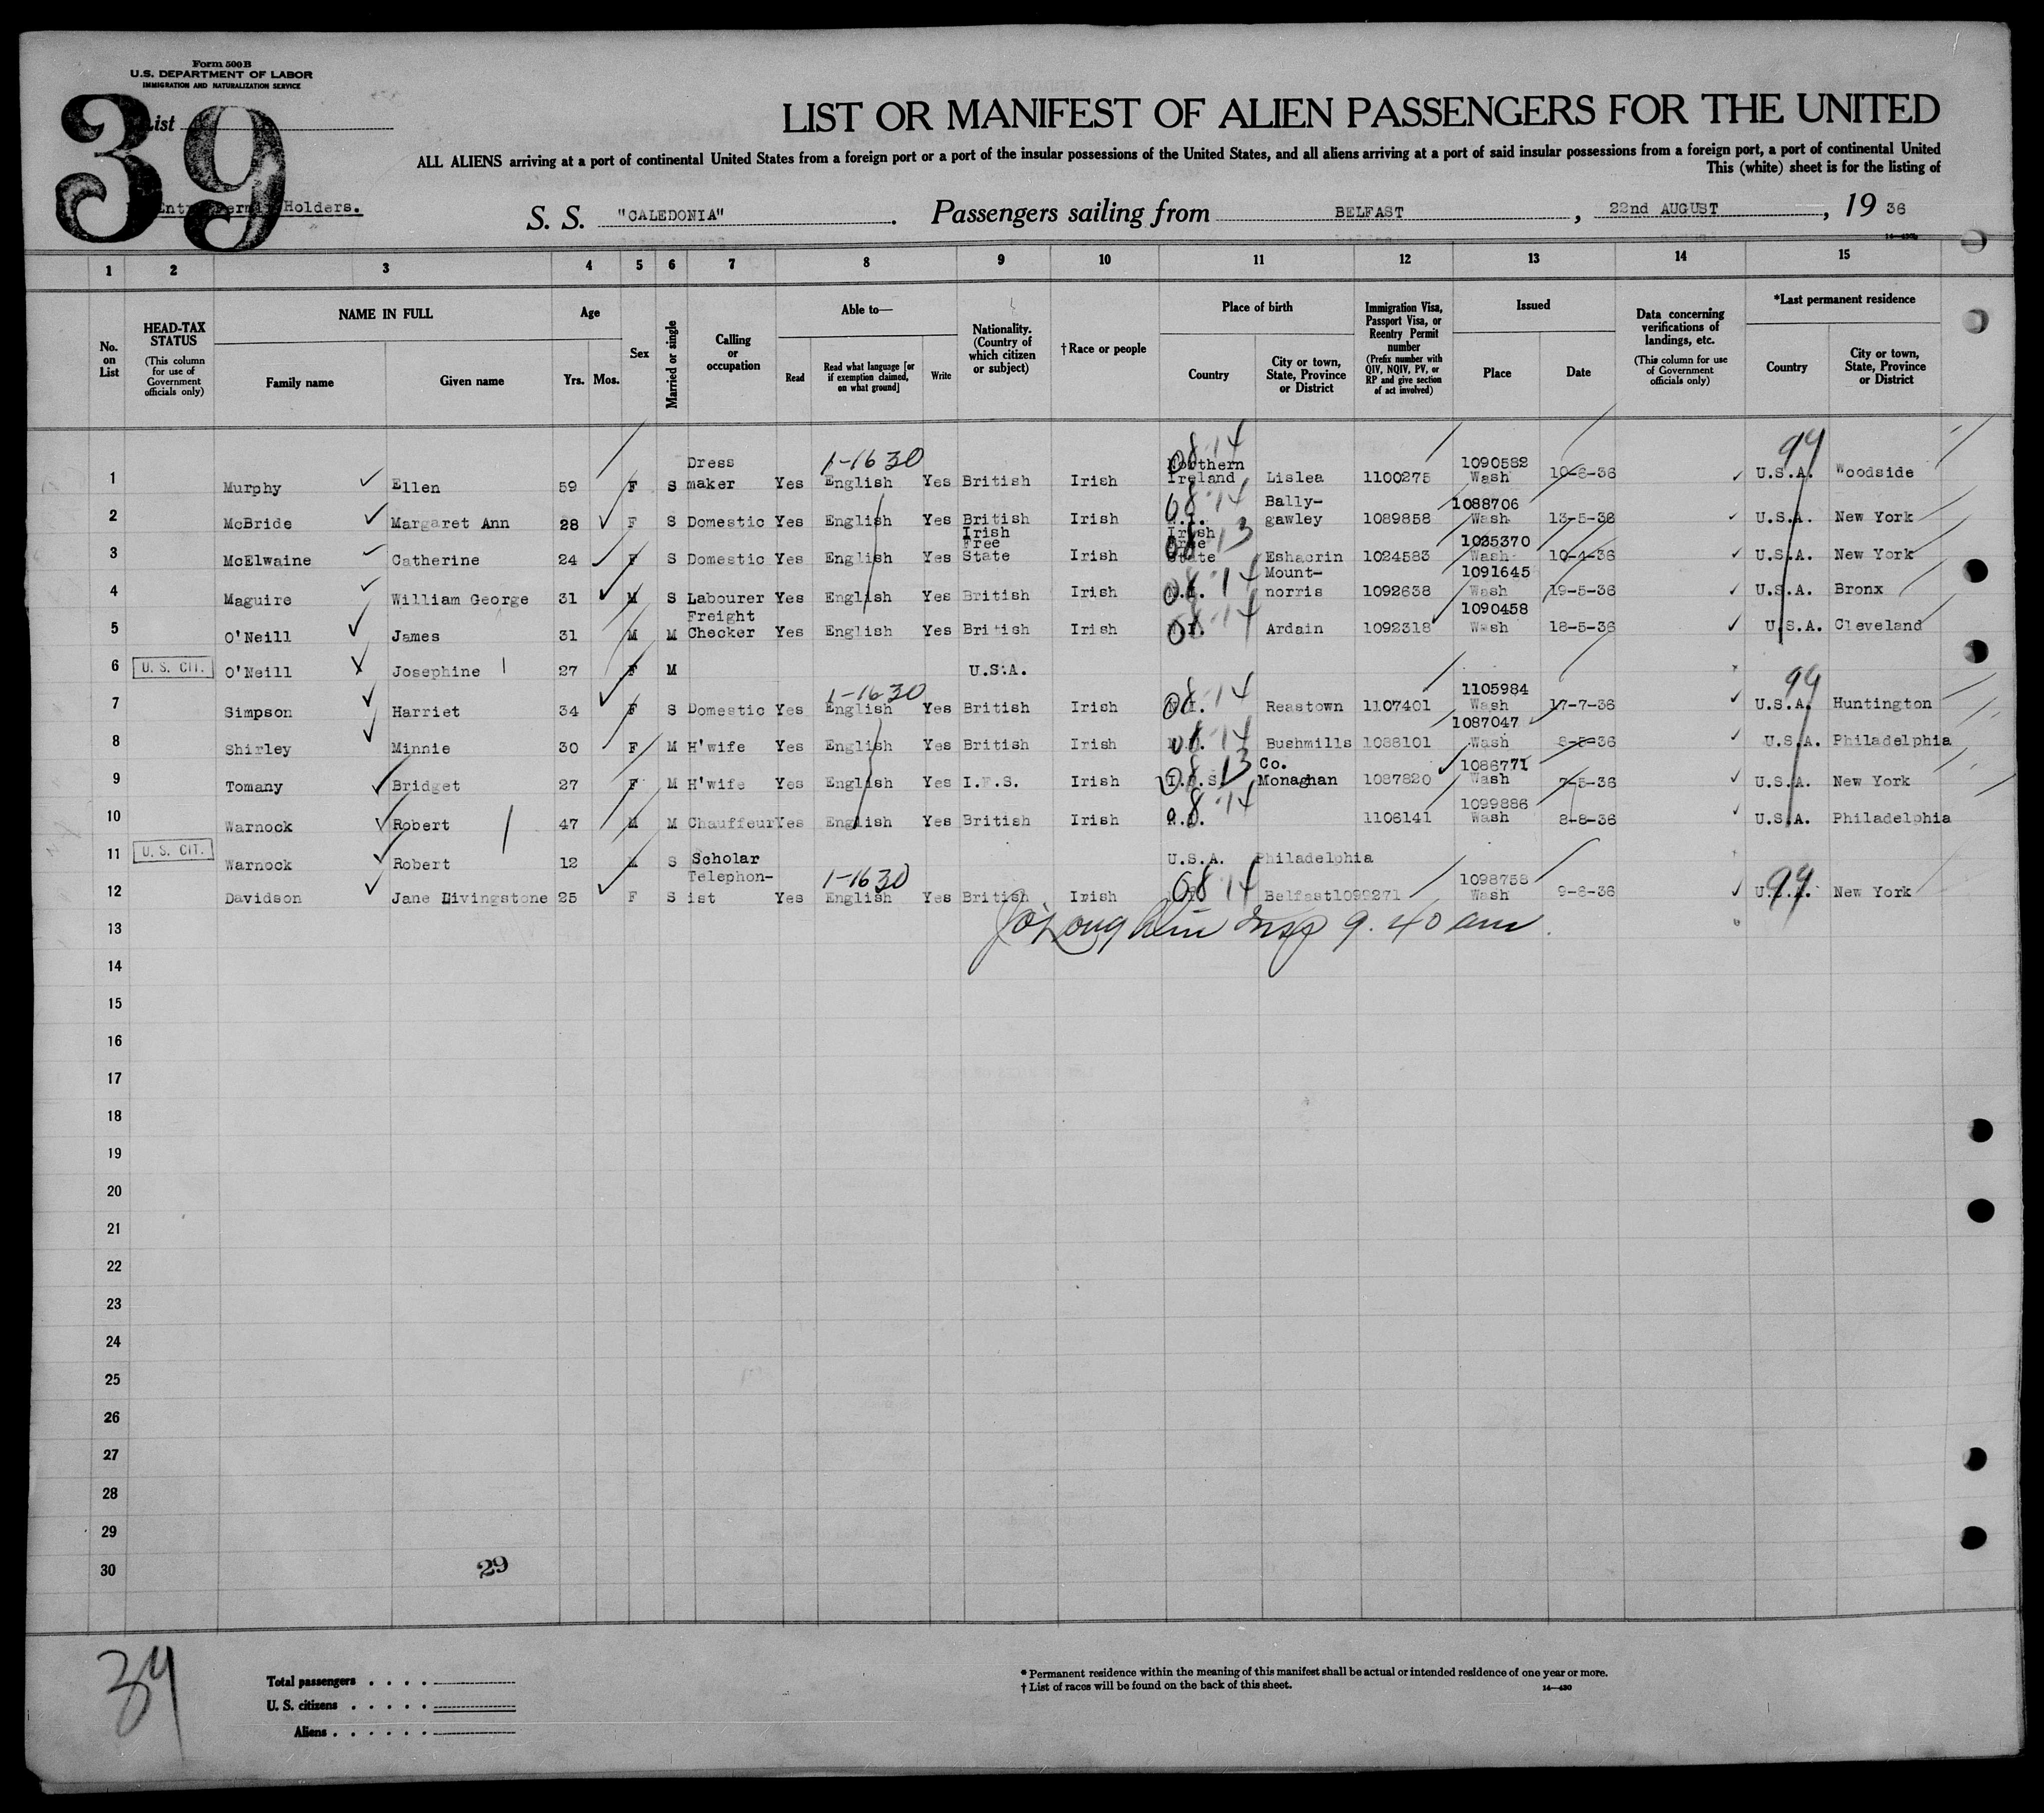 Form 500 B
U.S. DEPARTMENT OF LABOR
IMMIGRATION AND NATURALIZATION SERVICE
List
39
LIST OR MANIFEST OF ALIEN PASSENGERS FOR THE UNITED
ALL ALIENS arriving at a port of continental United States from a foreign port or a port of the insular possessions of the United States, and all aliens arriving at a port of said insular possessions from a foreign port, a port of continental United
This (white) sheet is for the listing of
Holders.
S. S. "CALEDONIA". Passengers sailing from BELFAST, 22nd AUGUST, 19 36
1 2 3 4 5 6 7 8 9 10 11 12 13 14 15
No. on List
HEAD-TAX STATUS (This column for use of Government officials only)
NAME IN FULL
Family name Given name
Age
Yrs. Mos.
Sex
Married or single
Calling or occupation
Able to—
Read
Read what language [or if exemption claimed, on what ground]
Write
Nationality. (Country of which citizen or subject)
†Race or people
Place of birth
Country
City or town, State, Province or District
Immigration Visa, Passport Visa, or Reentry Permit number (Prefix number with QIV, NQIV, PV, or RP and give section of act involved)
Issued
Place Date
Data concerning verifications of landings, etc. (This column for use of Government officials only)
*Last permanent residence
Country
City or town, State, Province or District
1 Murphy Ellen 59 F S Dress maker Yes 1-1630 English Yes British Irish 08 14 Northern Ireland Lislea 1100275 1090582 Wash 10-6-36 99 U.S.A. Woodside
2 McBride Margaret Ann 28 F S Domestic Yes English Yes British Irish 08 14 Bally-gawley 1089858 1088706 Wash 13-5-36 U.S.A. New York
3 McElwaine Catherine 24 F S Domestic Yes English Yes Irish Free State Irish Irish Free State 13 Eshacrin 1024583 1025370 Wash 10-4-36 U.S.A. New York
4 Maguire William George 31 M S Labourer Yes English Yes British Irish 08 14 Mount-norris 1092638 1091645 Wash 19-5-36 U.S.A. Bronx
5 O'Neill James 31 M M Freight Checker Yes English Yes British Irish 08 14 Ardain 1092318 1090458 Wash 18-5-36 U.S.A. Cleveland
6 U. S. CIT. O'Neill Josephine 27 F M U.S.A.
7 Simpson Harriet 34 F S Domestic Yes 1-1630 English Yes British Irish 08 14 Reastown 1107401 1105984 Wash 17-7-36 99 U.S.A. Huntington
8 Shirley Minnie 30 F M H'wife Yes English Yes British Irish 08 14 Bushmills 1088101 1087047 Wash U.S.A. Philadelphia
9 Tomany Bridget 27 F M H'wife Yes English Yes I.F.S. Irish 08 13 Co. Monaghan 1087820 1086771 Wash 7-5-36 U.S.A. New York
10 Warnock Robert 47 M M Chauffeur Yes English Yes British Irish 08 14 1106141 1099886 Wash 8-8-36 U.S.A. Philadelphia
11 U. S. CIT. Warnock Robert 12 M S Scholar U.S.A. Philadelphia
12 Davidson Jane Livingstone 25 F S Telephon-ist Yes 1-1630 English Yes British Irish 08 14 Belfast 1099271 1098758 Wash 9-6-36 99 U.S.A. New York
13 Insp 9.40 am.
14
15
16
17
18
19
20
21
22
23
24
25
26
27
28
29
30
29
39
Total passengers
U. S. citizens
Aliens
* Permanent residence within the meaning of this manifest shall be actual or intended residence of one year or more.
† List of races will be found on the back of this sheet.
14—430